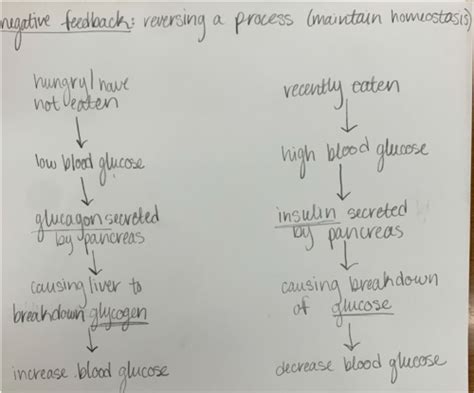 negative feedback: reversing a process (maintain homeostasis)
hungry/have
not eaten
low blood glucose
glucagon secreted
by pancreas
causing liver to
breakdown glycogen
increase blood glucose
recently eaten
high blood glucose
insulin secreted
by pancreas
causing breakdown
of glucose
decrease blood glucose